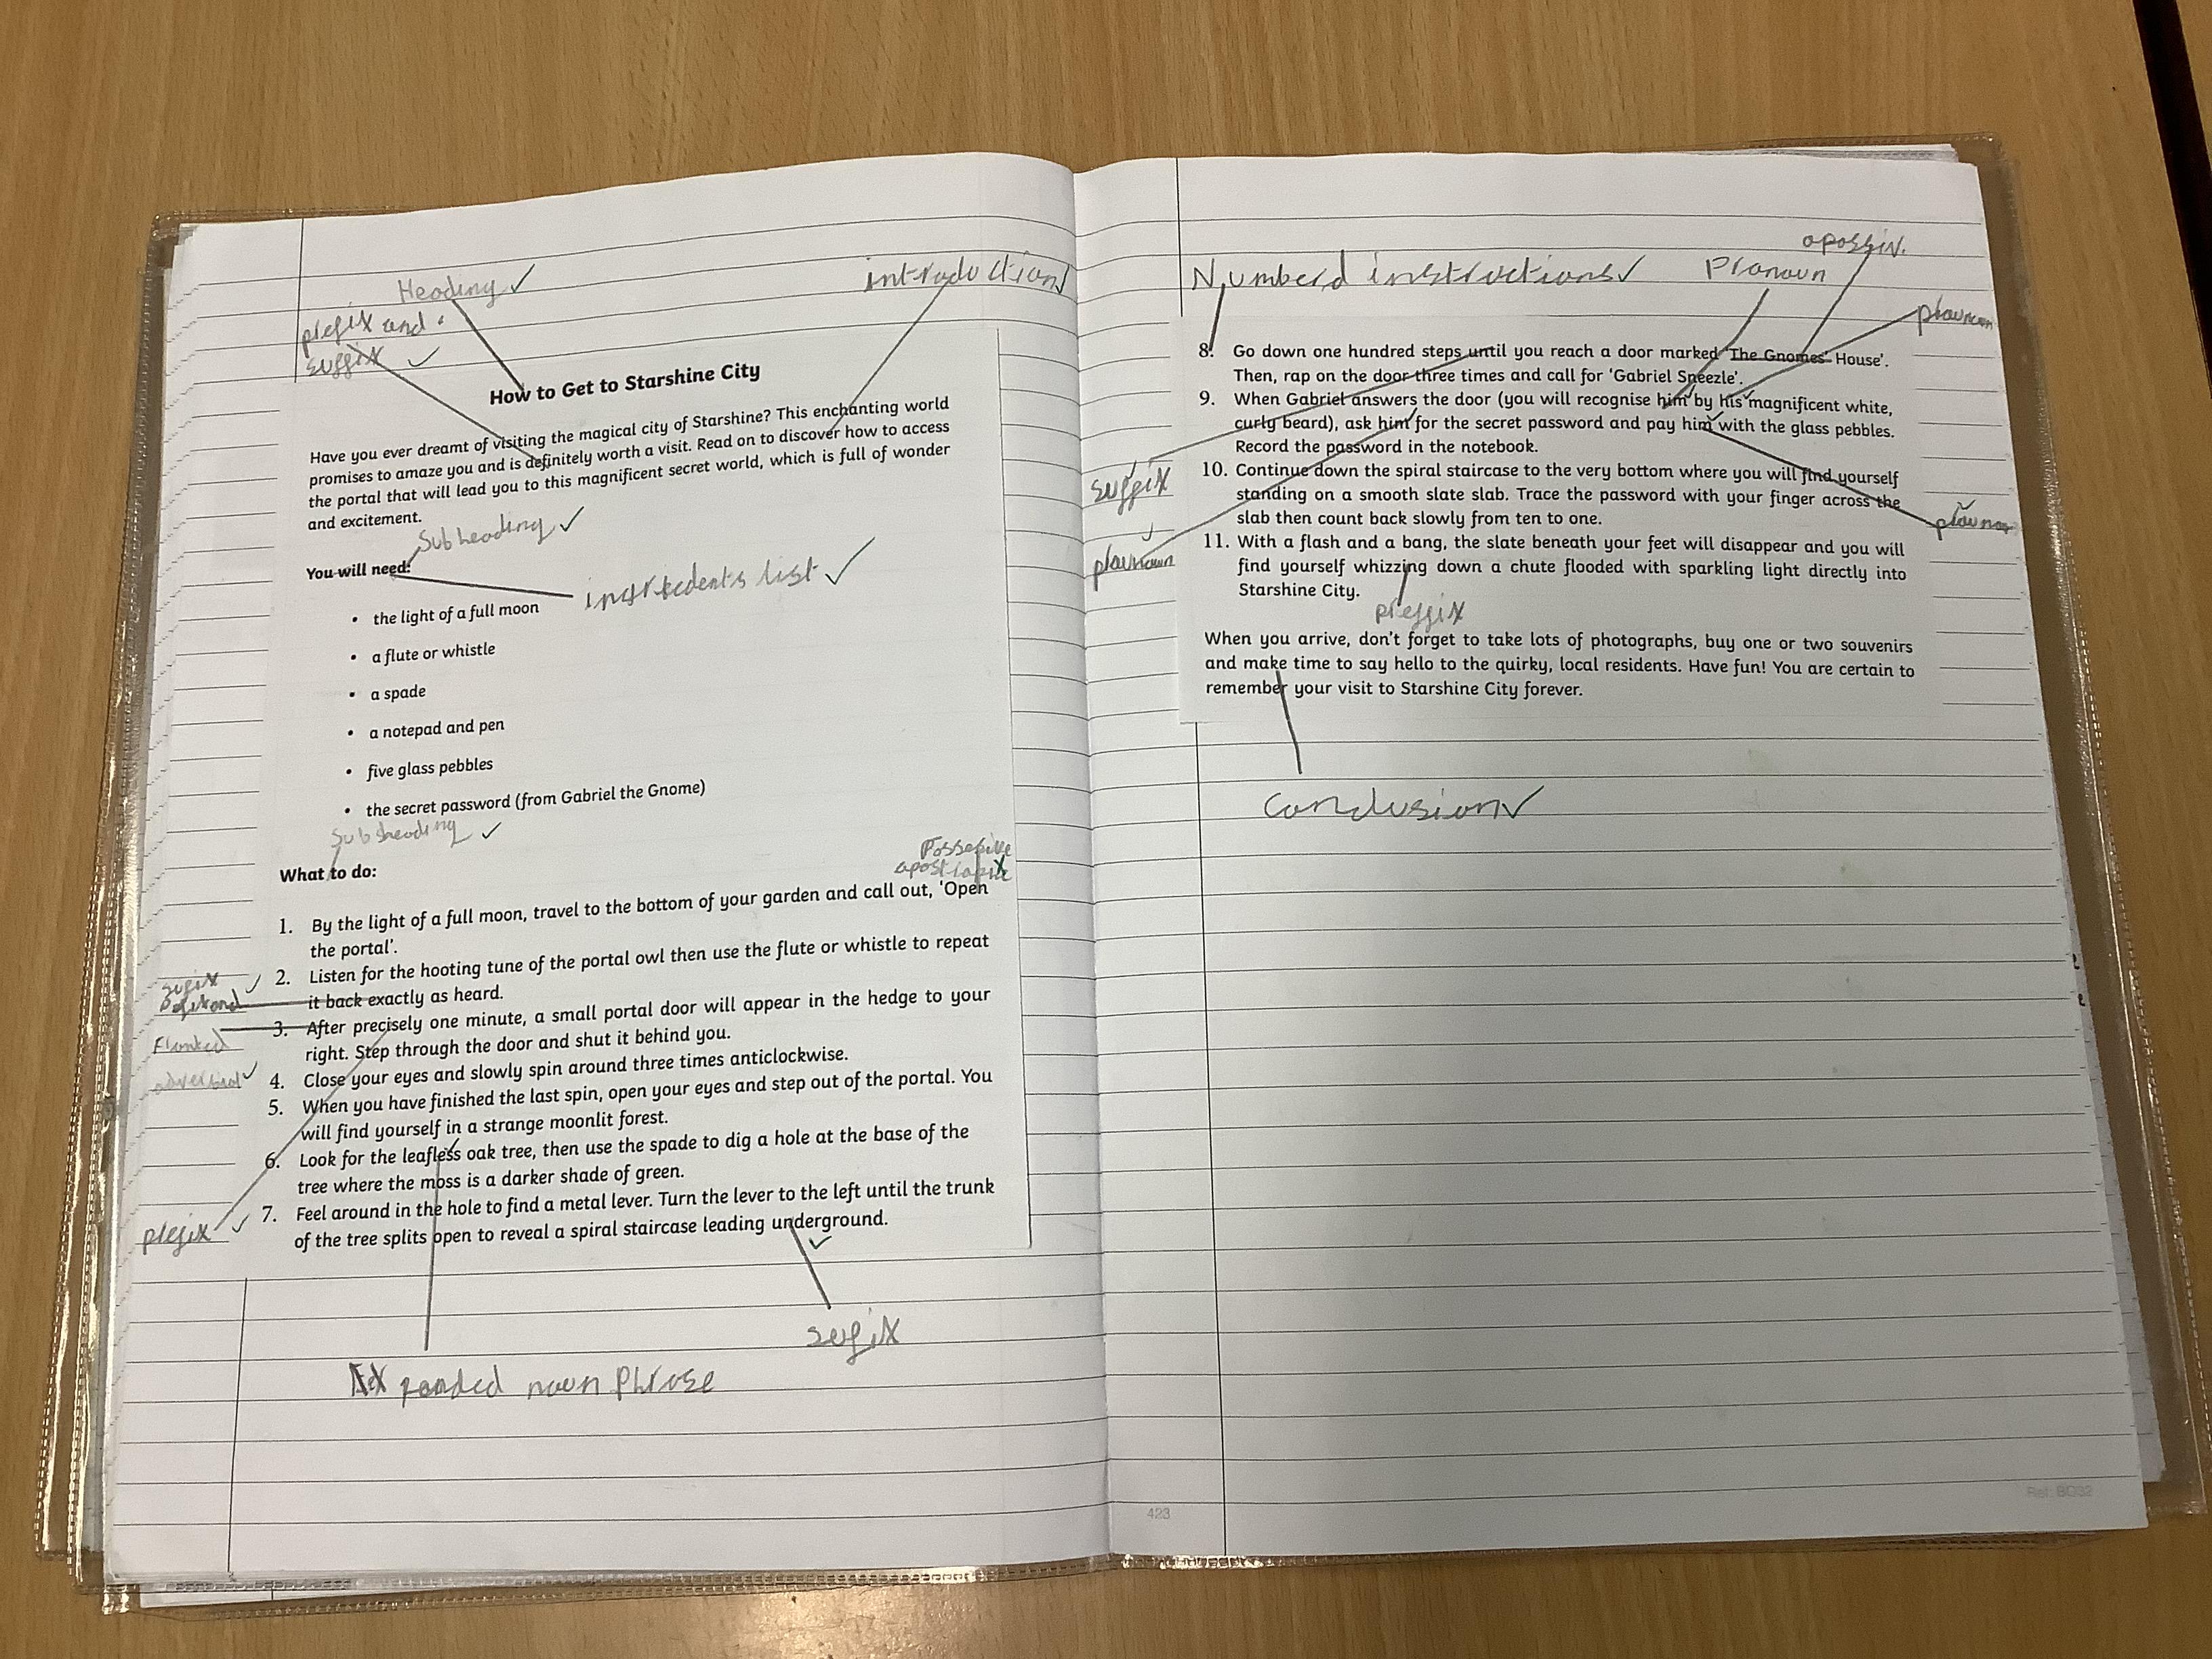 Heading ✓
introduction ✓
prefix and
suffix ✓
How to Get to Starshine City
Have you ever dreamt of visiting the magical city of Starshine? This enchanting world
promises to amaze you and is definitely worth a visit. Read on to discover how to access
the portal that will lead you to this magnificent secret world, which is full of wonder
and excitement.
Subheading ✓
You will need:
ingrtedents list ✓
• the light of a full moon
• a flute or whistle
• a spade
• a notepad and pen
• five glass pebbles
• the secret password (from Gabriel the Gnome)
Subheading ✓
What to do:
1. By the light of a full moon, travel to the bottom of your garden and call out, 'Open
the portal'.
2. Listen for the hooting tune of the portal owl then use the flute or whistle to repeat
it back exactly as heard.
3. After precisely one minute, a small portal door will appear in the hedge to your
right. Step through the door and shut it behind you.
4. Close your eyes and slowly spin around three times anticlockwise.
5. When you have finished the last spin, open your eyes and step out of the portal. You
will find yourself in a strange moonlit forest.
6. Look for the leafless oak tree, then use the spade to dig a hole at the base of the
tree where the moss is a darker shade of green.
7. Feel around in the hole to find a metal lever. Turn the lever to the left until the trunk
of the tree splits open to reveal a spiral staircase leading underground.
sufix ✓
adverbial ✓
prefix ✓
sufix
Expanded noun Phrase
Numberd instructions ✓
Pronoun
8. Go down one hundred steps until you reach a door marked 'The Gnomes' House'.
Then, rap on the door three times and call for 'Gabriel Sneezle'.
9. When Gabriel answers the door (you will recognise him by his magnificent white,
curly beard), ask him for the secret password and pay him with the glass pebbles.
Record the password in the notebook.
10. Continue down the spiral staircase to the very bottom where you will find yourself
standing on a smooth slate slab. Trace the password with your finger across the
slab then count back slowly from ten to one.
11. With a flash and a bang, the slate beneath your feet will disappear and you will
find yourself whizzing down a chute flooded with sparkling light directly into
Starshine City.
suffix
preffix
When you arrive, don't forget to take lots of photographs, buy one or two souvenirs
and make time to say hello to the quirky, local residents. Have fun! You are certain to
remember your visit to Starshine City forever.
conclusion ✓
423